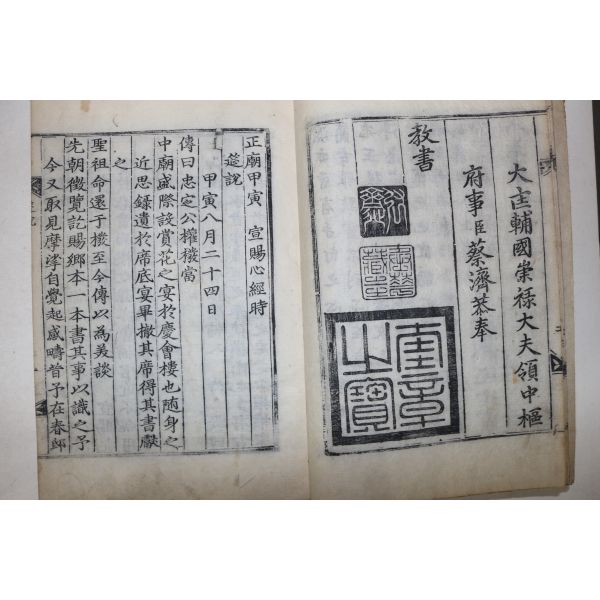 大匡輔國崇祿大夫領中樞
府事臣蔡濟恭奉
教書
奎章之寶
正廟甲寅 宣賜心經時
筵說
甲寅八月二十四日
傳曰忠定公權橃當
中廟盛際設賞花之宴於慶會樓也隨身之
近思錄遺於席底宴畢撤其席得其書獻
之
聖祖命還于橃至今傳以為美談
先朝徵覽訖賜鄕本一本書其事以識之予
今又取見摩挲自覺起感疇昔予在春邸